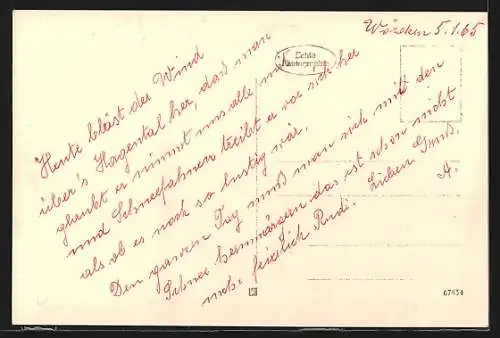 Wörden 5.1.65
Echte
Photographie
Heute bläst der Wind
über's Hagental her, dass man
glaubt er nimmt uns alle mit
und Schneefahnen treibt er vor sich her
als ob es noch so lustig wär.
Den ganzen Tag muss man sich mit den
das ist schon nicht
mehr feierlich Rudi. Lieben Gruß.
A.
67454